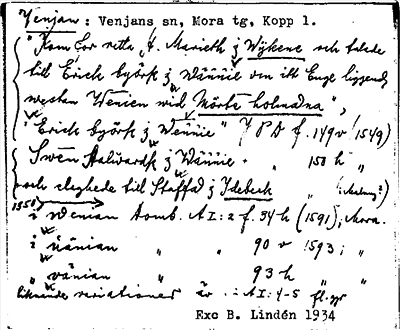 Venjan: Venjans sn, Mora tg, Kopp l.
"Kom för retta, f. Marieth j Wijkene och talade
till Erich byörk j Wännie om itt Enge liggende
westan Wenien wid Mörte holmdna",
"Erich byörk j Wennie" J P A f. 149 v (1549)
Swen Halwardsk j Wännie. " 150 h "
och slaghede till Staffad j Idebeck "
1550
i Wenian Tomb. A I: 2 f. 34 h (1591), Mora.
i uänian " " 90 v 1593; "
" vänian " 93 h "
liknande variationer är A I: 4-5 fl. ggr
Exc B. Lindén 1934